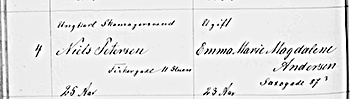 Ungkarl Skomagersvend
Ugift
4
Niels Petersen
Emma Marie Magdalene
Andersen
Fiskergade 11 Stuen
Saxogade 87³
25 Aar
23 Aar